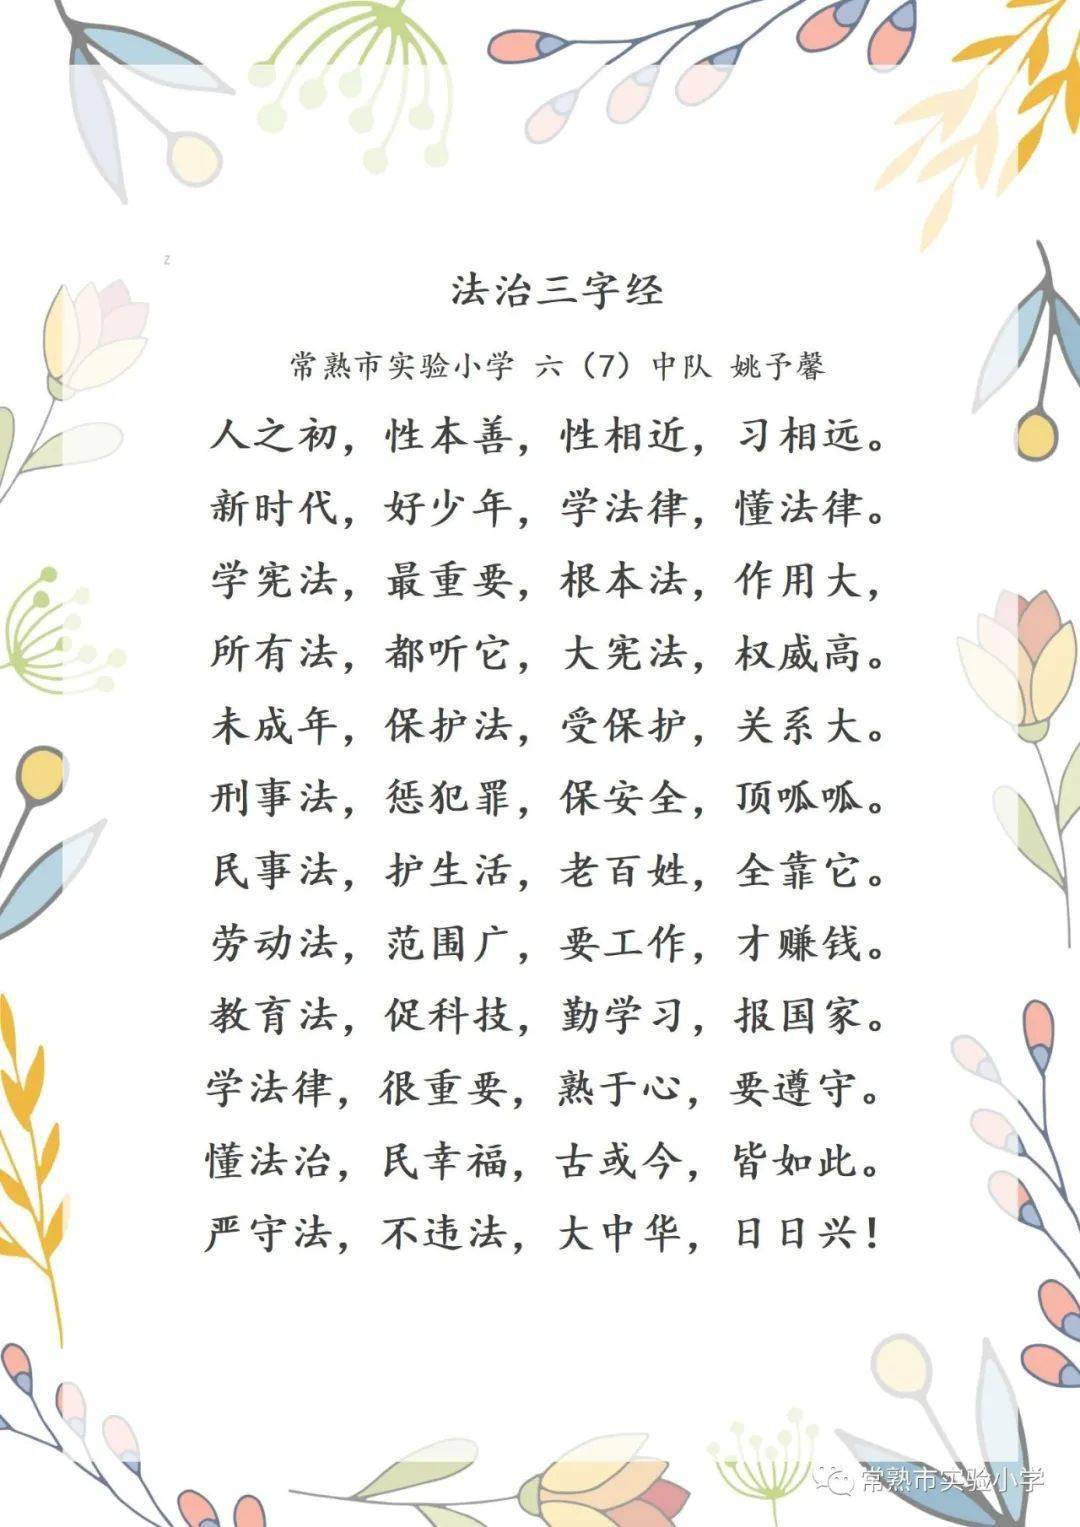 z
法治三字经
常熟市实验小学 六（7）中队 姚予馨
人之初，性本善，性相近，习相远。
新时代，好少年，学法律，懂法律。
学宪法，最重要，根本法，作用大，
所有法，都听它，大宪法，权威高。
未成年，保护法，受保护，关系大。
刑事法，惩犯罪，保安全，顶呱呱。
民事法，护生活，老百姓，全靠它。
劳动法，范围广，要工作，才赚钱。
教育法，促科技，勤学习，报国家。
学法律，很重要，熟于心，要遵守。
懂法治，民幸福，古或今，皆如此。
严守法，不违法，大中华，日日兴！
常熟市实验小学